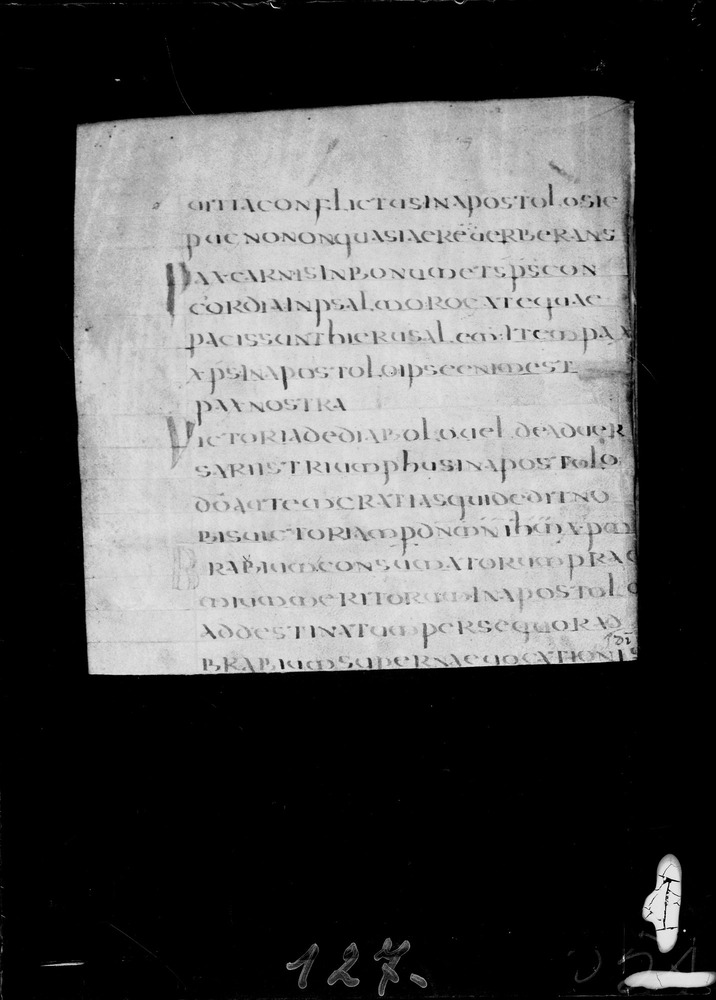 UITIACONFLICTUSINAPOSTOLOSIC
PUGNONONQUASIAEREUERBERANS
PAXCARNISINBONUMETSPSCON
CORDIAINPSALMOROGATEQUAE
PACISSUNTHIERUSALEMITEMPAX
XPSINAPOSTOLOIPSEENIMEST
PAXNOSTRA
UICTORIADEDIABOLOUELDEADUER
SARIISTRIUMPHUSINAPOSTOLO
DOAUTEMGRATIASQUIDEDITNO
BISUICTORIAMPDNMNIHMXPM
BRABIUMCONSUMATORUMPRAE
MIUMMERITORUMINAPOSTOLO
ADDESTINATUMPERSEQUORAD
BRABIUMSUPERNAEUOCATIONIS
127.